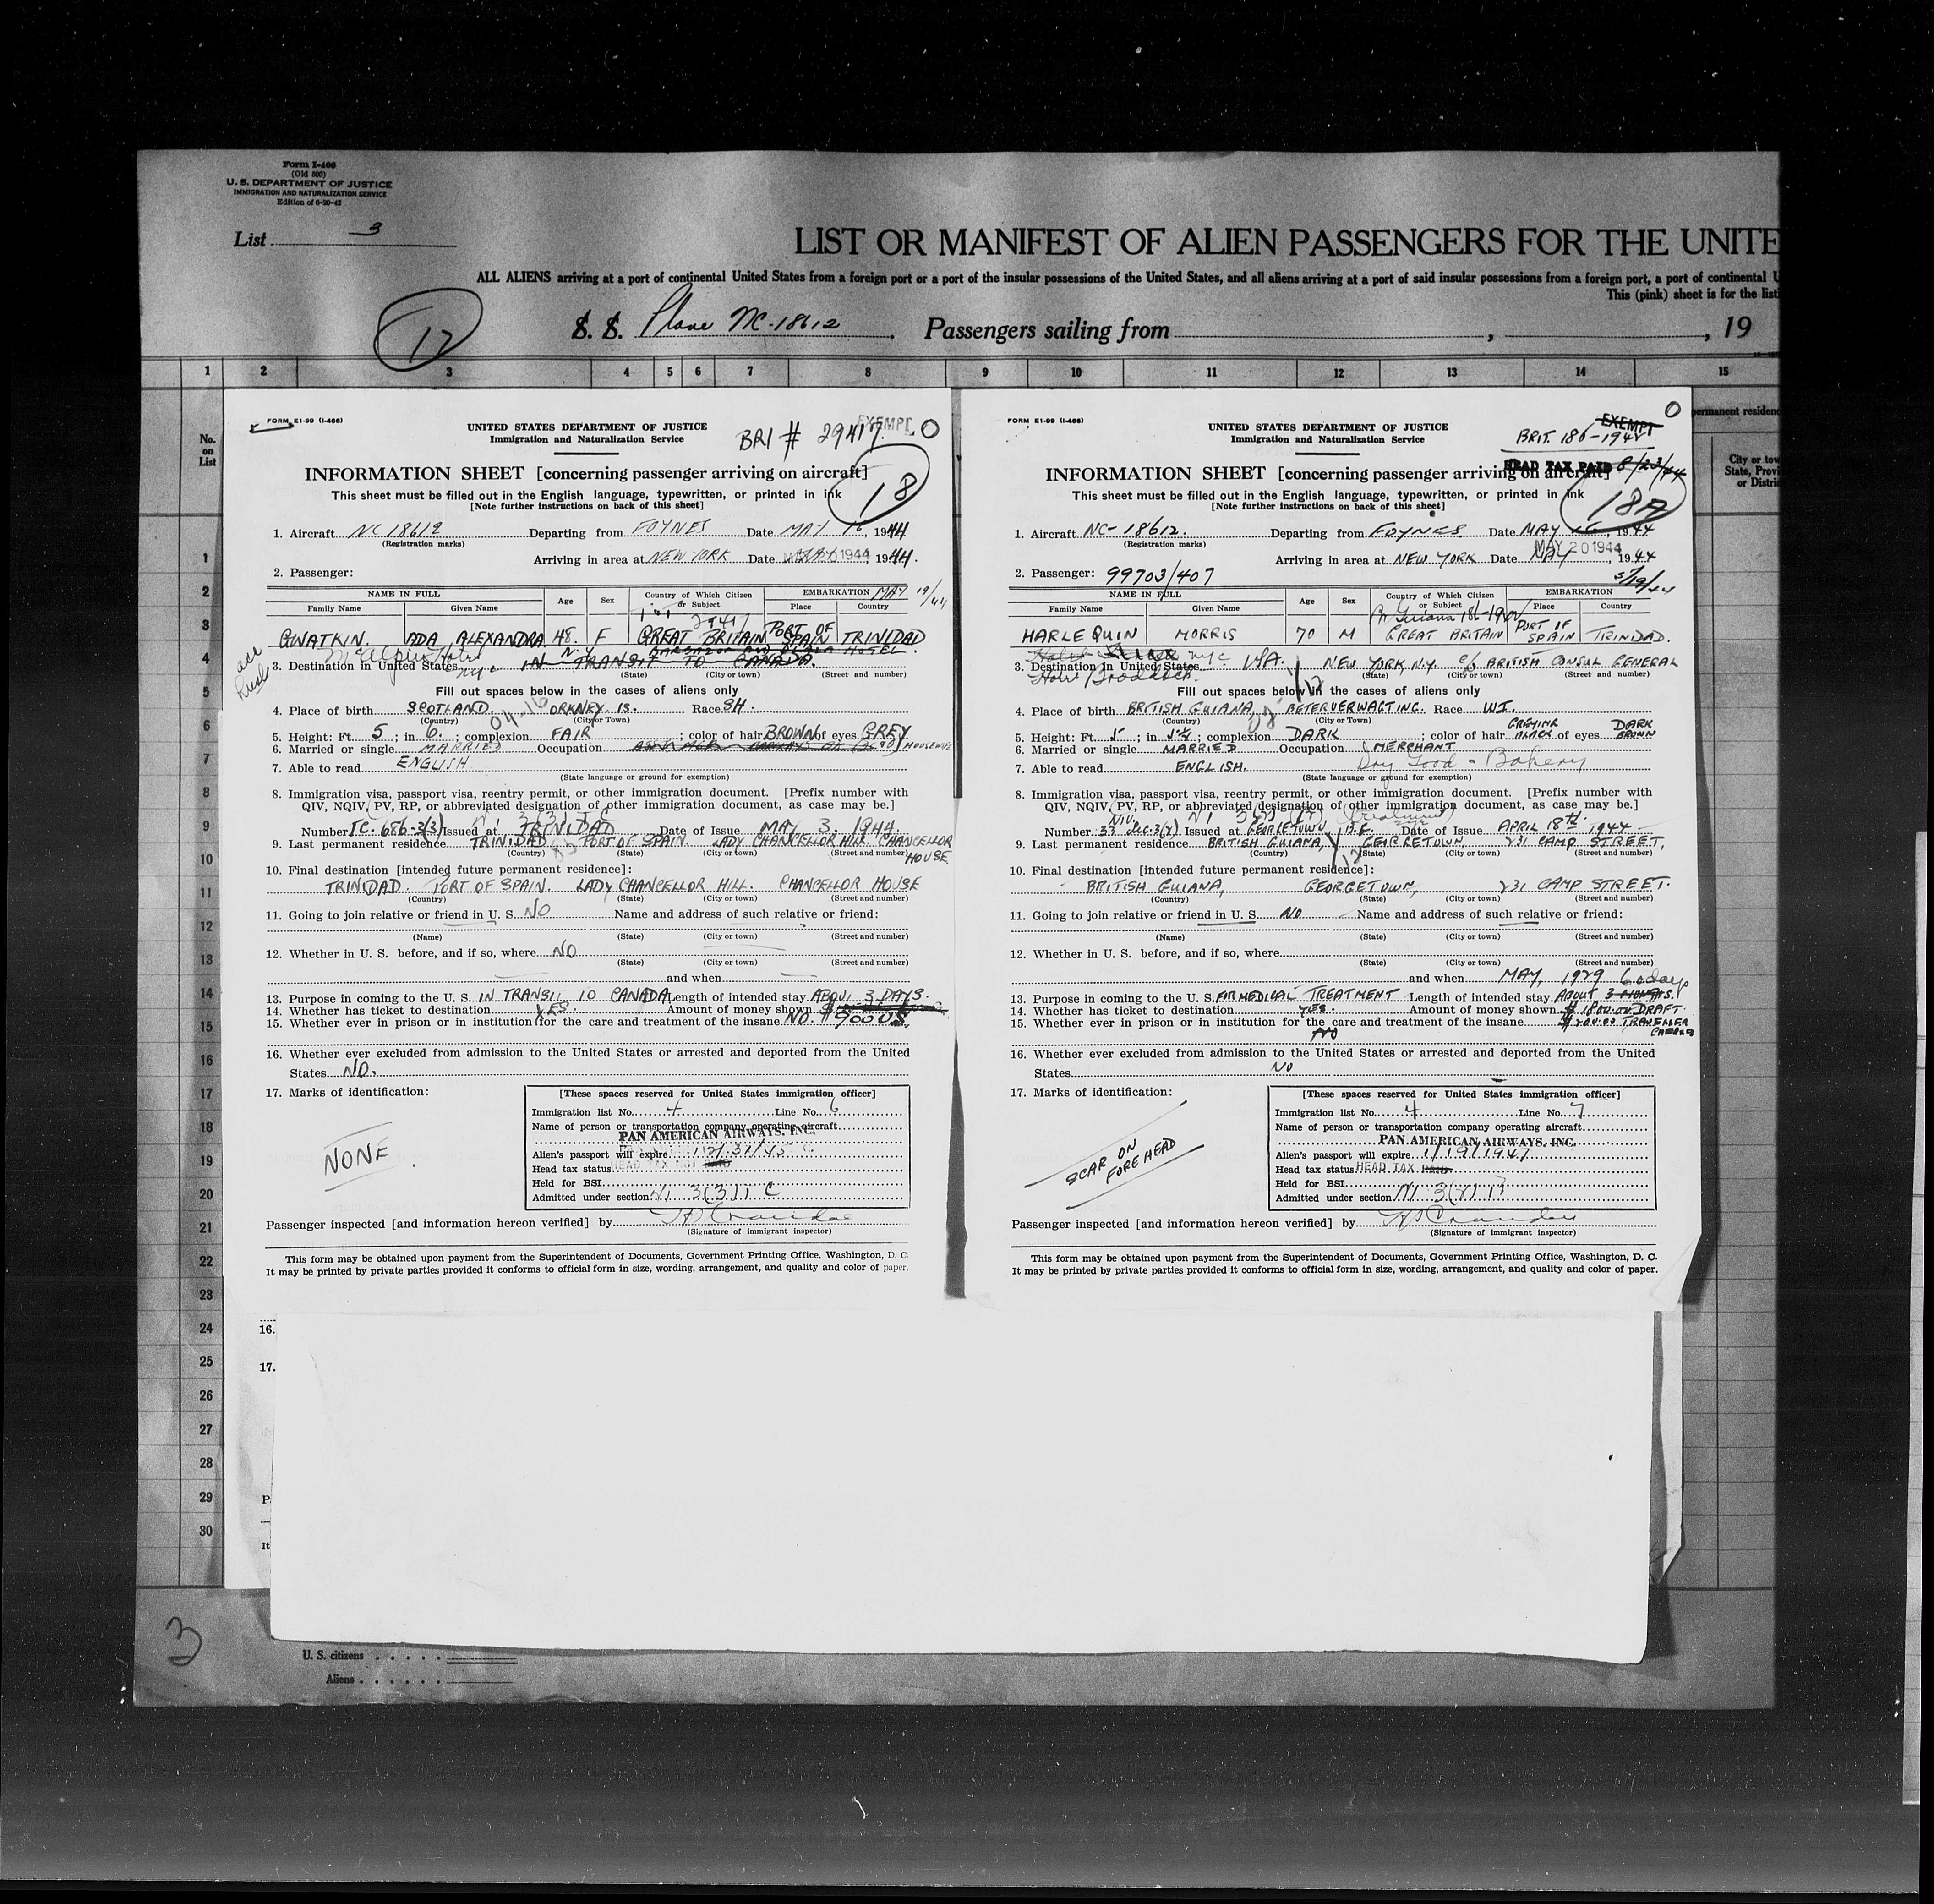 Form I-400
(Old 500)
U. S. DEPARTMENT OF JUSTICE
IMMIGRATION AND NATURALIZATION SERVICE
Edition of 6-20-42
List 3
LIST OR MANIFEST OF ALIEN PASSENGERS FOR THE UNITE
ALL ALIENS arriving at a port of continental United States from a foreign port or a port of the insular possessions of the United States, and all aliens arriving at a port of said insular possessions from a foreign port, a port of continental U
This (pink) sheet is for the listi
12
S. S. Plane NC-18612 . Passengers sailing from , , 19
1 2 3 4 5 6 7 8 9 10 11 12 13 14 15
No. on List
ermanent residenc
City or tow
State, Provi
or Distric
FORM E1-99 (I-466)
UNITED STATES DEPARTMENT OF JUSTICE
Immigration and Naturalization Service
BRI # 29417 EXEMPT O
INFORMATION SHEET [concerning passenger arriving on aircraft]
18
This sheet must be filled out in the English language, typewritten, or printed in ink
[Note further instructions on back of this sheet]
1. Aircraft NC 18612 Departing from FOYNES Date MAY 16, 1944
(Registration marks)
Arriving in area at NEW YORK Date MAY 1944, 1944.
2. Passenger:
NAME IN FULL Age Sex Country of Which Citizen or Subject EMBARKATION MAY 19/44
Family Name Given Name Place Country
29417
GWATKIN. ADA ALEXANDRA 48. F GREAT BRITAIN PORT OF SPAIN TRINIDAD
McAlpin Hotel N.Y. PLAZA HOTEL.
3. Destination in United States NYC IN TRANSIT TO CANADA.
(State) (City or town) (Street and number)
Fill out spaces below in the cases of aliens only
4. Place of birth SCOTLAND. ORKNEY IS. Race SH.
(Country) (City or Town)
04-16
5. Height: Ft. 5; in 6.; complexion FAIR; color of hair BROWN of eyes GREY
6. Married or single MARRIED Occupation HOUSEWIFE
7. Able to read ENGLISH
(State language or ground for exemption)
8. Immigration visa, passport visa, reentry permit, or other immigration document. [Prefix number with
QIV, NQIV, PV, RP, or abbreviated designation of other immigration document, as case may be.]
Number TC. 686-3(3) Issued at TRINIDAD Date of Issue MAY 3. 1944.
9. Last permanent residence TRINIDAD PORT OF SPAIN. LADY CHANCELLOR HILL. CHANCELLOR HOUSE
(Country) (State) (City or town) (Street and number)
10. Final destination [intended future permanent residence]:
TRINIDAD. PORT OF SPAIN. LADY CHANCELLOR HILL. CHANCELLOR HOUSE
(Country) (State) (City or town) (Street and number)
11. Going to join relative or friend in U. S. NO Name and address of such relative or friend:
(Name) (State) (City or town) (Street and number)
12. Whether in U. S. before, and if so, where NO
(State) (City or town) (Street and number)
and when
13. Purpose in coming to the U. S. IN TRANSIT TO CANADA Length of intended stay ABOUT 3 DAYS.
14. Whether has ticket to destination YES. Amount of money shown
15. Whether ever in prison or in institution for the care and treatment of the insane NO. $900 US.
16. Whether ever excluded from admission to the United States or arrested and deported from the United
States NO.
17. Marks of identification:
NONE
[These spaces reserved for United States immigration officer]
Immigration list No. 4 Line No. 6
Name of person or transportation company operating aircraft
PAN AMERICAN AIRWAYS, INC.
Alien's passport will expire 12/31/45
Head tax status HEAD TAX
Held for BSI
Admitted under section NI 3(3) T C
Passenger inspected [and information hereon verified] by
(Signature of immigrant inspector)
This form may be obtained upon payment from the Superintendent of Documents, Government Printing Office, Washington, D. C.
It may be printed by private parties provided it conforms to official form in size, wording, arrangement, and quality and color of paper.
FORM E1-99 (I-466)
UNITED STATES DEPARTMENT OF JUSTICE
Immigration and Naturalization Service
EXEMPT O
BRIT. 186-1944
INFORMATION SHEET [concerning passenger arriving on aircraft]
HEAD TAX PAID 8/23/44
18A
This sheet must be filled out in the English language, typewritten, or printed in ink
[Note further instructions on back of this sheet]
1. Aircraft NC-18612. Departing from FOYNES Date MAY 16, 1944
(Registration marks)
Arriving in area at NEW YORK Date MAY 20 1944, 1944
2. Passenger: 99703/407 5/19/44
NAME IN FULL Age Sex Country of Which Citizen or Subject EMBARKATION
Family Name Given Name Place Country
HARLEQUIN MORRIS 70 M GREAT BRITAIN PORT OF SPAIN TRINIDAD.
3. Destination in United States USA. NEW YORK, N.Y. c/o BRITISH CONSUL GENERAL
Hotel Braddock.
(State) (City or town) (Street and number)
Fill out spaces below in the cases of aliens only
4. Place of birth BRITISH GUIANA, BETERVERWAGTING. Race WI.
(Country) (City or Town)
5. Height: Ft. 5; in 5½; complexion DARK; color of hair GREYING BLACK of eyes DARK BROWN
6. Married or single MARRIED Occupation MERCHANT
Dry Good - Bakery
7. Able to read ENGLISH.
(State language or ground for exemption)
8. Immigration visa, passport visa, reentry permit, or other immigration document. [Prefix number with
QIV, NQIV, PV, RP, or abbreviated designation of other immigration document, as case may be.]
Number 33 Sec. 3(2) Issued at GEORGETOWN, B.G. Date of Issue APRIL 18TH 1944
9. Last permanent residence BRITISH GUIANA, GEORGETOWN, 231 CAMP STREET,
(Country) (State) (City or town) (Street and number)
10. Final destination [intended future permanent residence]:
BRITISH GUIANA, GEORGETOWN, 231 CAMP STREET.
(Country) (State) (City or town) (Street and number)
11. Going to join relative or friend in U. S. NO Name and address of such relative or friend:
(Name) (State) (City or town) (Street and number)
12. Whether in U. S. before, and if so, where
(State) (City or town) (Street and number)
and when MAY, 1929 60 days
13. Purpose in coming to the U. S. MEDICAL TREATMENT Length of intended stay ABOUT 3 MONTHS.
14. Whether has ticket to destination YES. Amount of money shown $1800.00 DRAFT.
15. Whether ever in prison or in institution for the care and treatment of the insane $200.00 TRAVELLER CHEQUES
NO
16. Whether ever excluded from admission to the United States or arrested and deported from the United
States NO
17. Marks of identification:
SCAR ON
FOREHEAD
[These spaces reserved for United States immigration officer]
Immigration list No. 4 Line No. 7
Name of person or transportation company operating aircraft
PAN AMERICAN AIRWAYS, INC.
Alien's passport will expire 1/19/1947
Head tax status HEAD TAX
Held for BSI
Admitted under section NI 3(2) B
Passenger inspected [and information hereon verified] by
(Signature of immigrant inspector)
This form may be obtained upon payment from the Superintendent of Documents, Government Printing Office, Washington, D. C.
It may be printed by private parties provided it conforms to official form in size, wording, arrangement, and quality and color of paper.
1
2
3
4
5
6
7
8
9
10
11
12
13
14
15
16
17
18
19
20
21
22
23
24
25
26
27
28
29
30
16.
17.
P
It
3
U. S. citizens
Aliens